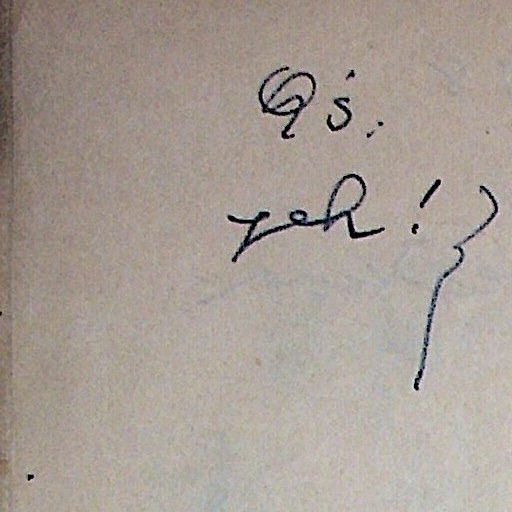 Q's.
yeh! }